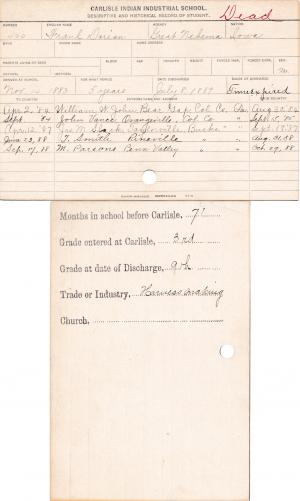 CARLISLE INDIAN INDUSTRIAL SCHOOL.
DESCRIPTIVE AND HISTORICAL RECORD OF STUDENT. Dead
NUMBER ENGLISH NAME AGENCY NATION
Frank Dorian Great Nehema Iowa
INDIAN NAME HOME ADDRESS
PARENTS LIVING OR DEAD BLOOD AGE HEIGHT WEIGHT FORCED INSP. FORCED EXPR. SEX
M.
ARRIVED AT SCHOOL FOR WHAT PERIOD DATE DISCHARGED CAUSE OF DISCHARGE
Nov 14 1883 5 years July 8, 1889 Time expired
TO COUNTRY PATRONS NAME AND ADDRESS FROM COUNTRY
Apr 2, 84 William W. John Bear Gap, Col. Co. Pa.
Sept 84 John Vance Orangeville, Col Co " Sept. 15, 85
Apr. 12, 87 " Sept. 17, 87
June 23, 88 T. Smith Pineville " Aug. 31, 88
Sep. 17, 88 M. Parsons Penn Valley " Oct. 29, 88
Months in school before Carlisle, 71
Grade entered at Carlisle, 3rd
Grade at date of Discharge, 9th
Trade or Industry, Harness making
Church,